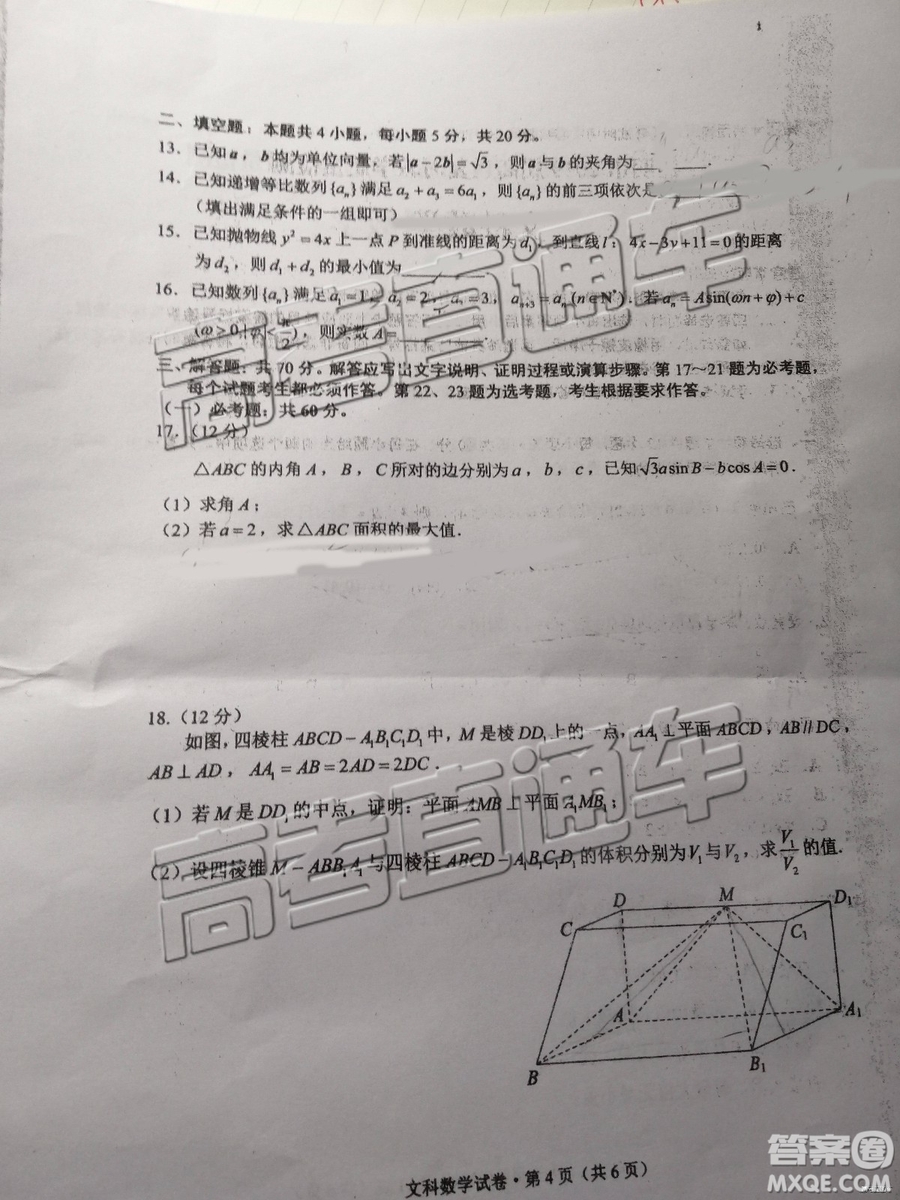 二、填空题：本题共4小题，每小题5分，共20分。
13. 已知a，b均为单位向量，若|a－2b|=√3，则a与b的夹角为
14. 已知递增等比数列{aₙ}满足a₂+a₃=6a₁，则{aₙ}的前三项依次是
（填出满足条件的一组即可）
15. 已知抛物线y²=4x上一点P到准线的距离为d₁，到直线l：4x－3y+11=0的距离
为d₂，则d₁+d₂的最小值为
16. 已知数列{aₙ}满足a₁=1，a₂=2，a₃=3，aₙ₊₃=aₙ(n∈N*)．若aₙ=Asin(ωn+φ)+c
(ω>0，|φ|<π/2)，则实数A=
三、解答题：共70分。解答应写出文字说明、证明过程或演算步骤。第17～21题为必考题，
每个试题考生都必须作答。第22、23题为选考题，考生根据要求作答。
（一）必考题：共60分。
17.（12分）
△ABC的内角A，B，C所对的边分别为a，b，c，已知√3asinB－bcosA=0．
（1）求角A；
（2）若a=2，求△ABC面积的最大值．
18.（12分）
如图，四棱柱ABCD－A₁B₁C₁D₁中，M是棱DD₁上的一点，AA₁⊥平面ABCD，AB∥DC，
AB⊥AD，AA₁=AB=2AD=2DC．
（1）若M是DD₁的中点，证明：平面AMB⊥平面A₁MB₁；
（2）设四棱锥M－ABB₁A₁与四棱柱ABCD－A₁B₁C₁D₁的体积分别为V₁与V₂，求V₁/V₂的值．
D M D₁
C C₁
A A₁
B B₁
文科数学试卷·第4页（共6页）
高考直通车
高考直通车
答案圈
MXQE.COM